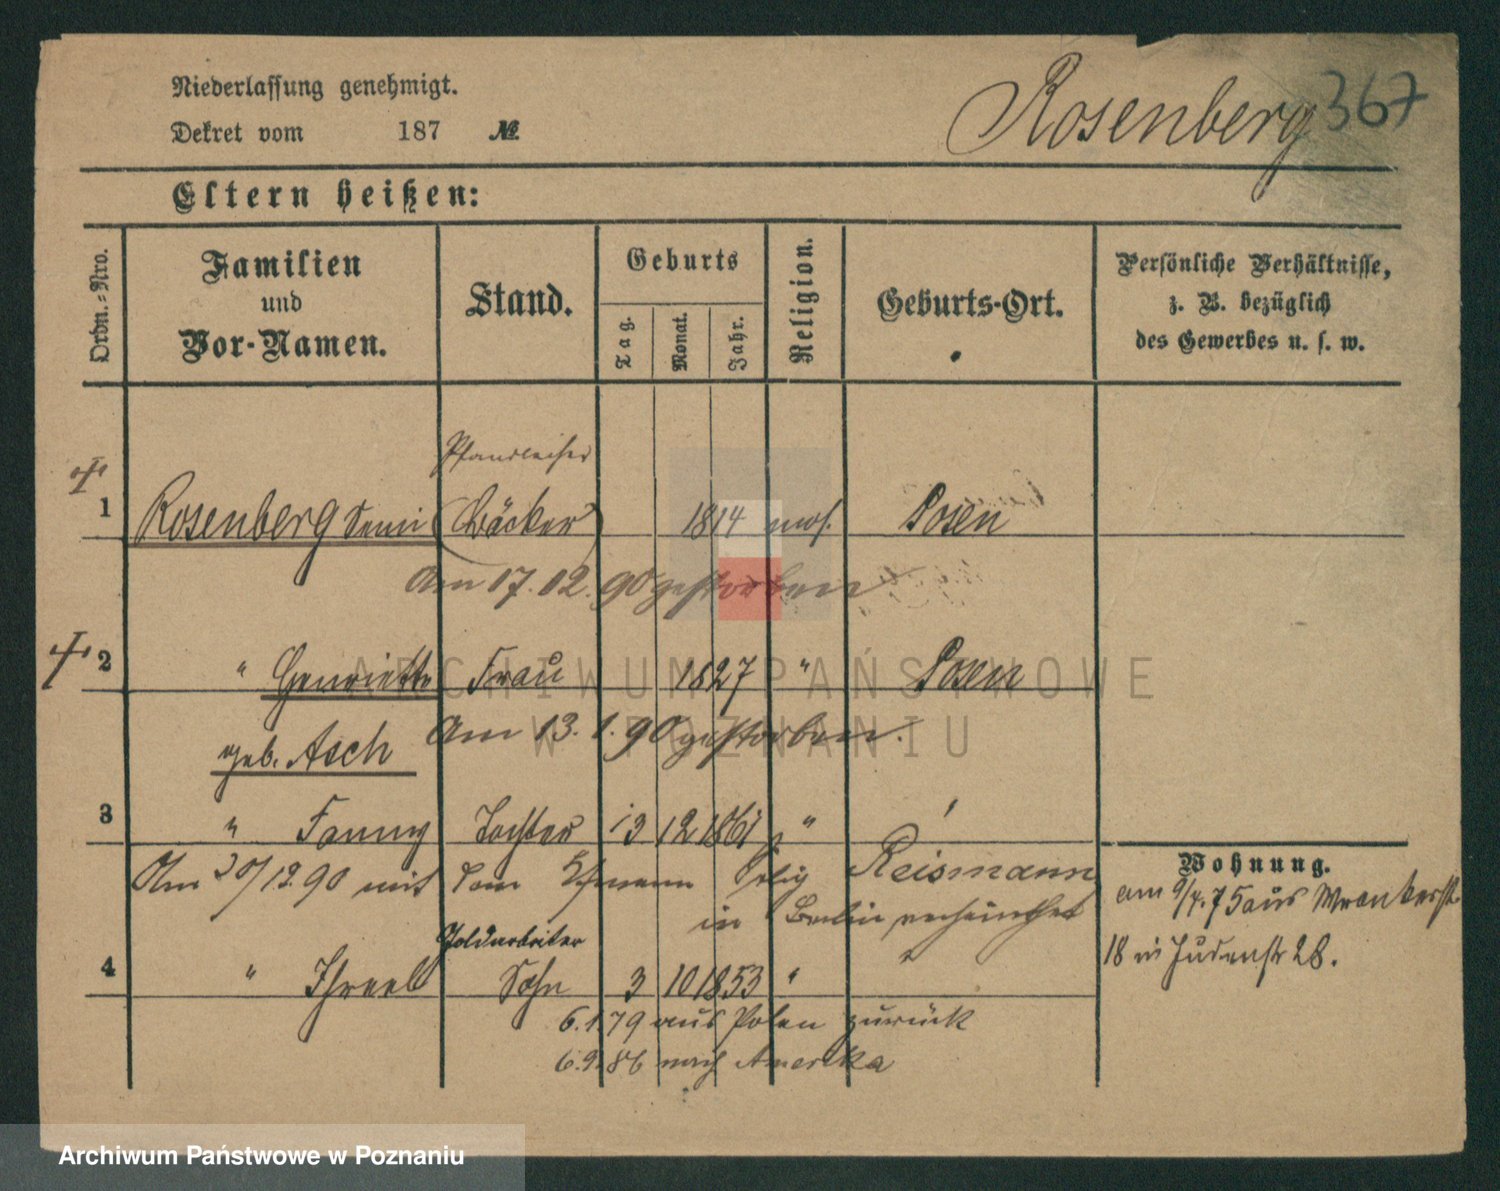 Niederlassung genehmigt.
Dekret vom 187 №
Rosenberg 367
Eltern heißen:
Ordn.-Nro.
Familien und Vor-Namen.
Stand.
Geburts
Tag.
Monat.
Jahr.
Religion.
Geburts-Ort.
Persönliche Verhältnisse,
z. B. bezüglich
des Gewerbes u. s. w.
Pfandleiher
1 Rosenberg (Bäcker) 1814 mos. Posen
Am 17. 12. 90 gestorben
2 " Henriette Frau 1827 " Posen
geb. Asch Am 13. 1. 90 gestorben.
3 " Fanny Tochter 13 12 1861 " "
Am 30/12. 90 mit dem Reismann
in Berlin verheirathet
Goldarbeiter
4 " Sohn 3 10 1853 " "
6. 1. 79 aus Polen zurück
6. 9. 86 nach Amerika
Wohnung.
am 9/4. 75 aus Wronkerstr
18 in Judenstr 28.
ARCHIWUM PAŃSTWOWE
W POZNANIU
Archiwum Państwowe w Poznaniu